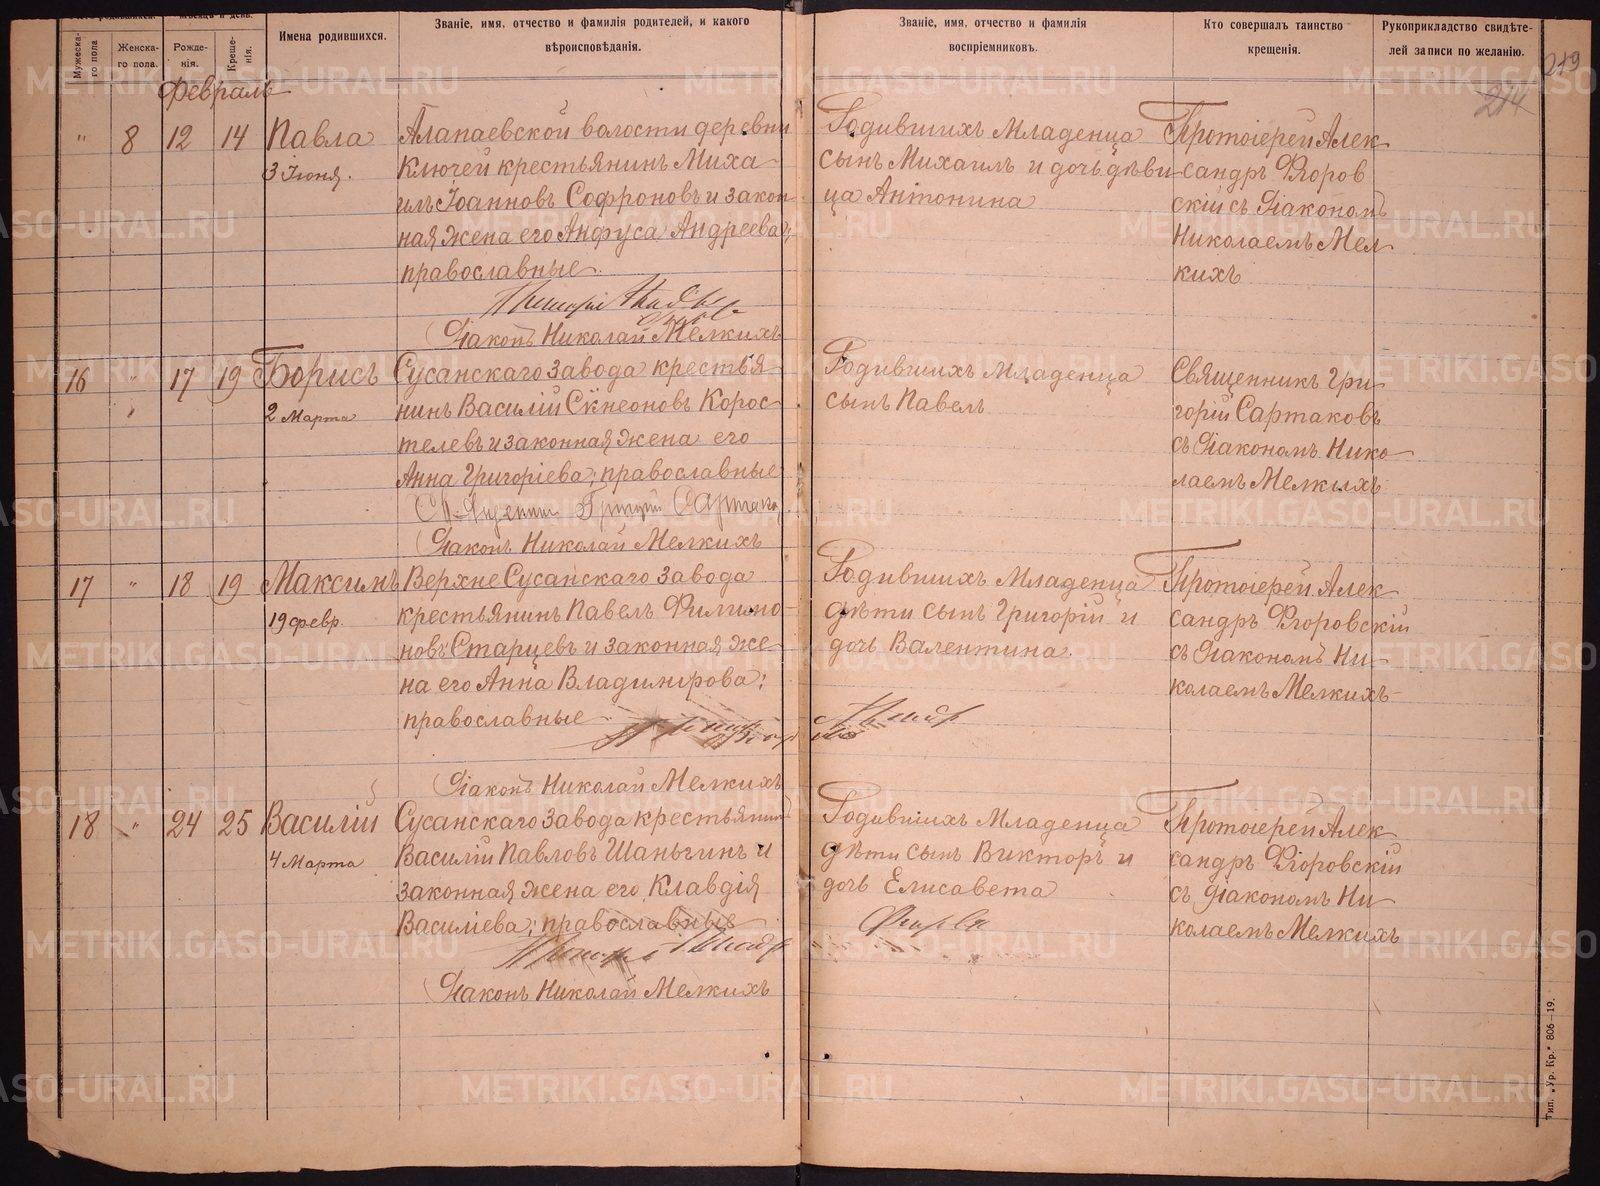 Званіе, имя, отчество и фамилія родителей, и какого
вѣроисповѣданія.
Имена родившихся.
Мужеска-
го пола
Женска-
го пола.
Рожде-
нія.
Креще-
нія.
Званіе, имя, отчество и фамилія
воспріемниковъ.
Кто совершалъ таинство
крещенія.
Рукоприкладство свидѣте-
лей записи по желанію.
219
214
Февраль
" 8 12 14 Павла
3 Іюня.
Алапаевской волости деревни
Ключей крестьянинъ Миха-
илъ Іоанновъ Софроновъ и закон
ная жена его Анфуса Андреева;
православные
Діаконъ Николай Мелкихъ
Родившихъ младенца
сынъ Михаилъ и дочь дѣви-
ца Антонина
Протоіерей Алек-
сандръ Флоров
скій съ Діакономъ
Николаемъ Мел-
кихъ
16 " 17 19 Борисъ
2 Марта
Сусанскаго завода крестья-
нинъ Василій Симеоновъ Корос-
телевъ и законная жена его
Анна Григоріева; православные
Священник Григорий Сартаков
Діаконъ Николай Мелкихъ
Родившихъ младенца
сынъ Павелъ
Священникъ Гри-
горій Сартаковъ
съ Діакономъ Нико-
лаемъ Мелкихъ
17 " 18 19 Максимъ
19 февр.
Верхне Сусанскаго завода
крестьянинъ Павелъ Филимо-
новъ Старцевъ и законная же-
на его Анна Владимірова;
православные
Діаконъ Николай Мелкихъ
Родившихъ младенца
дѣти сынъ Григорій и
дочь Валентина.
Протоіерей Алек-
сандръ Флоровскій
съ Діакономъ Ни-
колаемъ Мелкихъ
18 " 24 25 Василій
4 Марта
Сусанскаго завода крестьянинъ
Василій Павловъ Шаньгинъ и
законная жена его Клавдія
Василіева; православные
Діаконъ Николай Мелкихъ
Родившихъ младенца
дѣти сынъ Викторъ и
дочь Елисавета
Протоіерей Алек-
сандръ Флоровскій
съ Діакономъ Ни-
колаемъ Мелкихъ
Тип. „Ур. Кр." 806—19.
METRIKI.GASO-URAL.RU